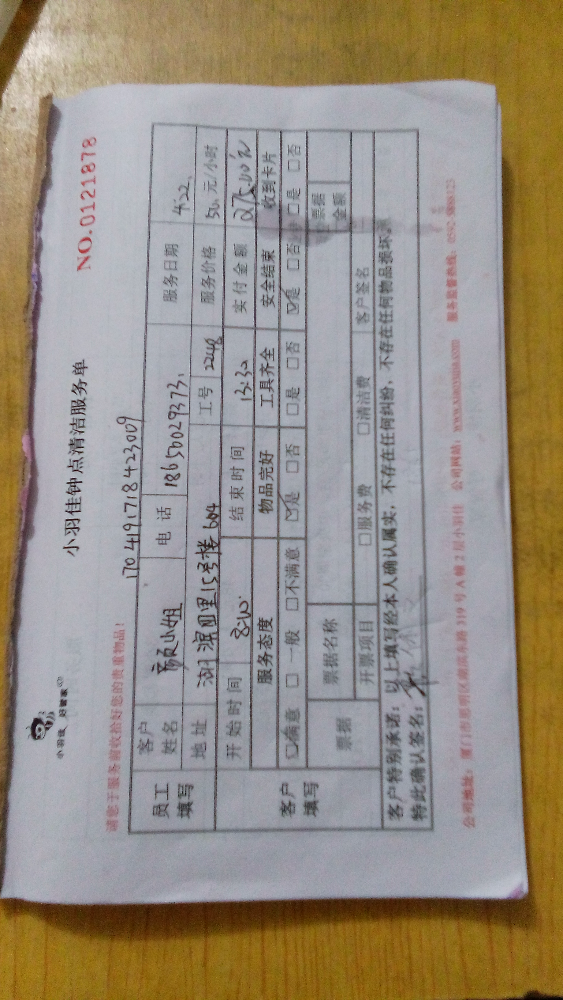 小羽佳 好管家
小羽佳钟点清洁服务单
NO.0121878
请您于服务前收拾好您的贵重物品！
1704191718423009
员工填写
客户姓名 小姐 电话 18650029373 服务日期 4.22
地址 湖滨四里15号楼604 工号 2248 服务价格 50 元/小时
开始时间 8:00 结束时间 13:30 实付金额 275.00元
客户填写
服务态度 物品完好 工具齐全 安全结束 收到卡片
☑满意 □一般 □不满意 ☑是 □否 □是 □否 ☑是 □否 □是 □否
票据 票据名称 票据金额
开票项目 □服务费 □清洁费 客户签名
客户特别承诺：以上填写经本人确认属实，不存在任何纠纷，不存在任何物品损坏。
特此确认签名：
公司地址：厦门市思明区湖滨东路319号A幢2层小羽佳 公司网站：www.xiaoyujia.com 服务监督热线：0592